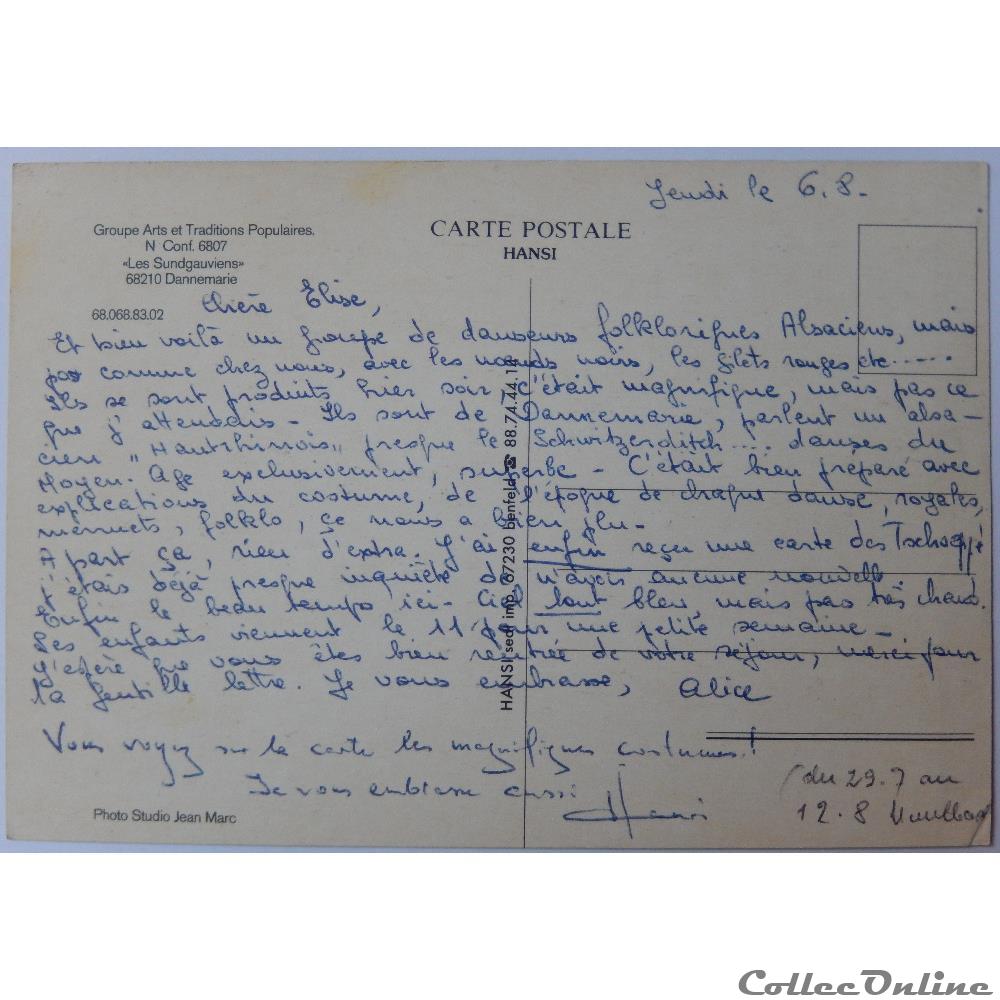 Jeudi le 6.8.-
Groupe Arts et Traditions Populaires.
N Conf. 6807
«Les Sundgauviens»
68210 Dannemarie
68.068.83.02
CARTE POSTALE
HANSI
Chère Elise,
Et bien voilà un groupe de danseurs folkloriques Alsaciens, mais
pas comme chez nous, avec les nœuds noirs, les gilets rouges etc.....
Ils se sont produits hier soir, c'était magnifique, mais pas ce
que j'attendais - Ils sont de Dannemarie, parlent un alsa-
cien "Hautrhinois" presque le Schwitzerditch... danses du
Moyen-Age exclusivement, superbe - C'était bien préparé avec
explications du costume, de l'époque de chaque danse, royales,
menuets, folklo, ça nous a bien plu -
A part ça, rien d'extra. J'ai enfin reçu une carte des
j'étais déjà presque inquiète de n'avoir aucune nouvelle
Enfin le beau tempo ici - Ciel tout bleu, mais pas très chaud.
Les enfants viennent le 11 pour une petite semaine -
J'espère que vous êtes bien rentrée de votre séjour, merci pour
ta gentille lettre. Je vous embrasse, Alice
Vous voyez sur la carte les magnifiques costumes!
Je vous embrasse aussi
(du 29.7 au
12.8
HANSI sedi imp. 67230 benfeld ☎ 88.74.44.14
Photo Studio Jean Marc
CollecOnline